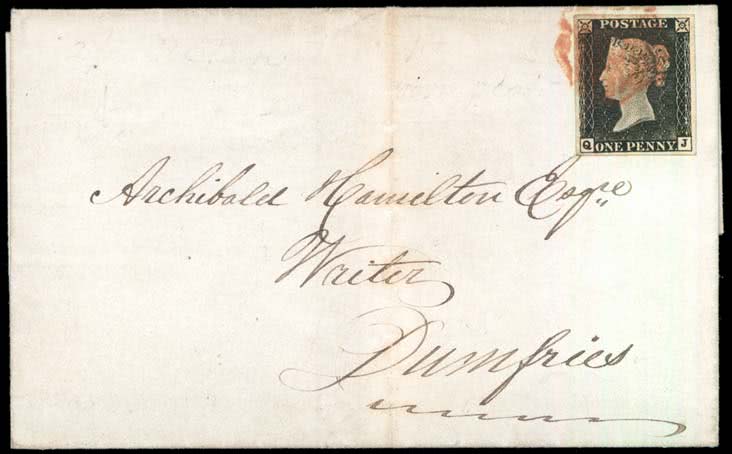 POSTAGE
Q ONE PENNY J
Archibald Hamilton Esqre
Writer
Dumfries